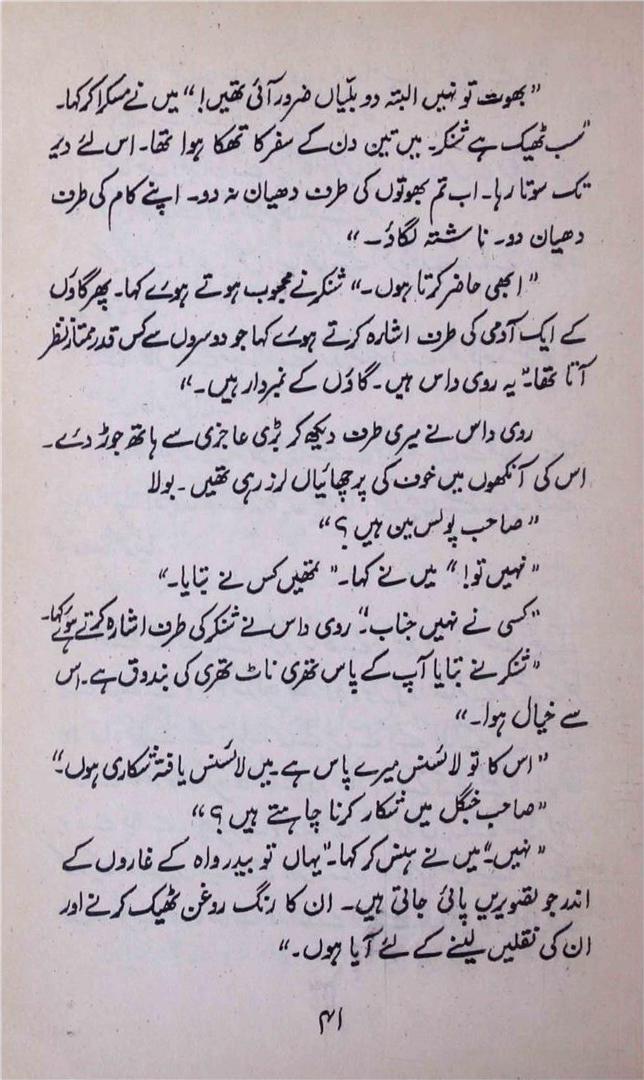 "بھوت تو نہیں البتہ دو بلّیاں ضرور آئی تھیں!" میں نے مسکرا کر کہا۔
"سب ٹھیک ہے شنکر۔ میں تین دن کے سفر کا تھکا ہوا تھا۔ اس لئے دیر
تک سوتا رہا۔ اب تم بھوتوں کی طرف دھیان نہ دو۔ اپنے کام کی طرف
دھیان دو۔ ناشتہ لگاؤ۔"
"ابھی حاضر کرتا ہوں۔" شنکر نے محجوب ہوتے ہوئے کہا۔ پھر گاؤں
کے ایک آدمی کی طرف اشارہ کرتے ہوئے کہا جو دوسروں سے کس قدر ممتاز نظر
آتا تھا۔ "یہ روی داس ہیں۔ گاؤں کے نمبردار ہیں۔"
روی داس نے میری طرف دیکھ کر بڑی عاجزی سے ہاتھ جوڑ دئے۔
اس کی آنکھوں میں خوف کی پرچھائیاں لرز رہی تھیں۔ بولا
"صاحب پولس مین ہیں؟"
"نہیں تو!" میں نے کہا۔ "تمھیں کس نے بتایا۔"
"کسی نے نہیں جناب۔" روی داس نے شنکر کی طرف اشارہ کرتے ہوئے کہا۔
"شنکر نے بتایا آپ کے پاس تھری ناٹ تھری کی بندوق ہے۔ اس
سے خیال ہوا۔"
"اس کا تو لائسنس میرے پاس ہے۔ میں لائسنس یافتہ شکاری ہوں۔"
"صاحب جنگل میں شکار کرنا چاہتے ہیں؟"
"نہیں۔" میں نے ہنس کر کہا۔ "یہاں تو بیدر واہ کے غاروں کے
اندر جو تصویریں پائی جاتی ہیں۔ ان کا رنگ روغن ٹھیک کرنے اور
ان کی نقلیں لینے کے لئے آیا ہوں۔"
۴۱